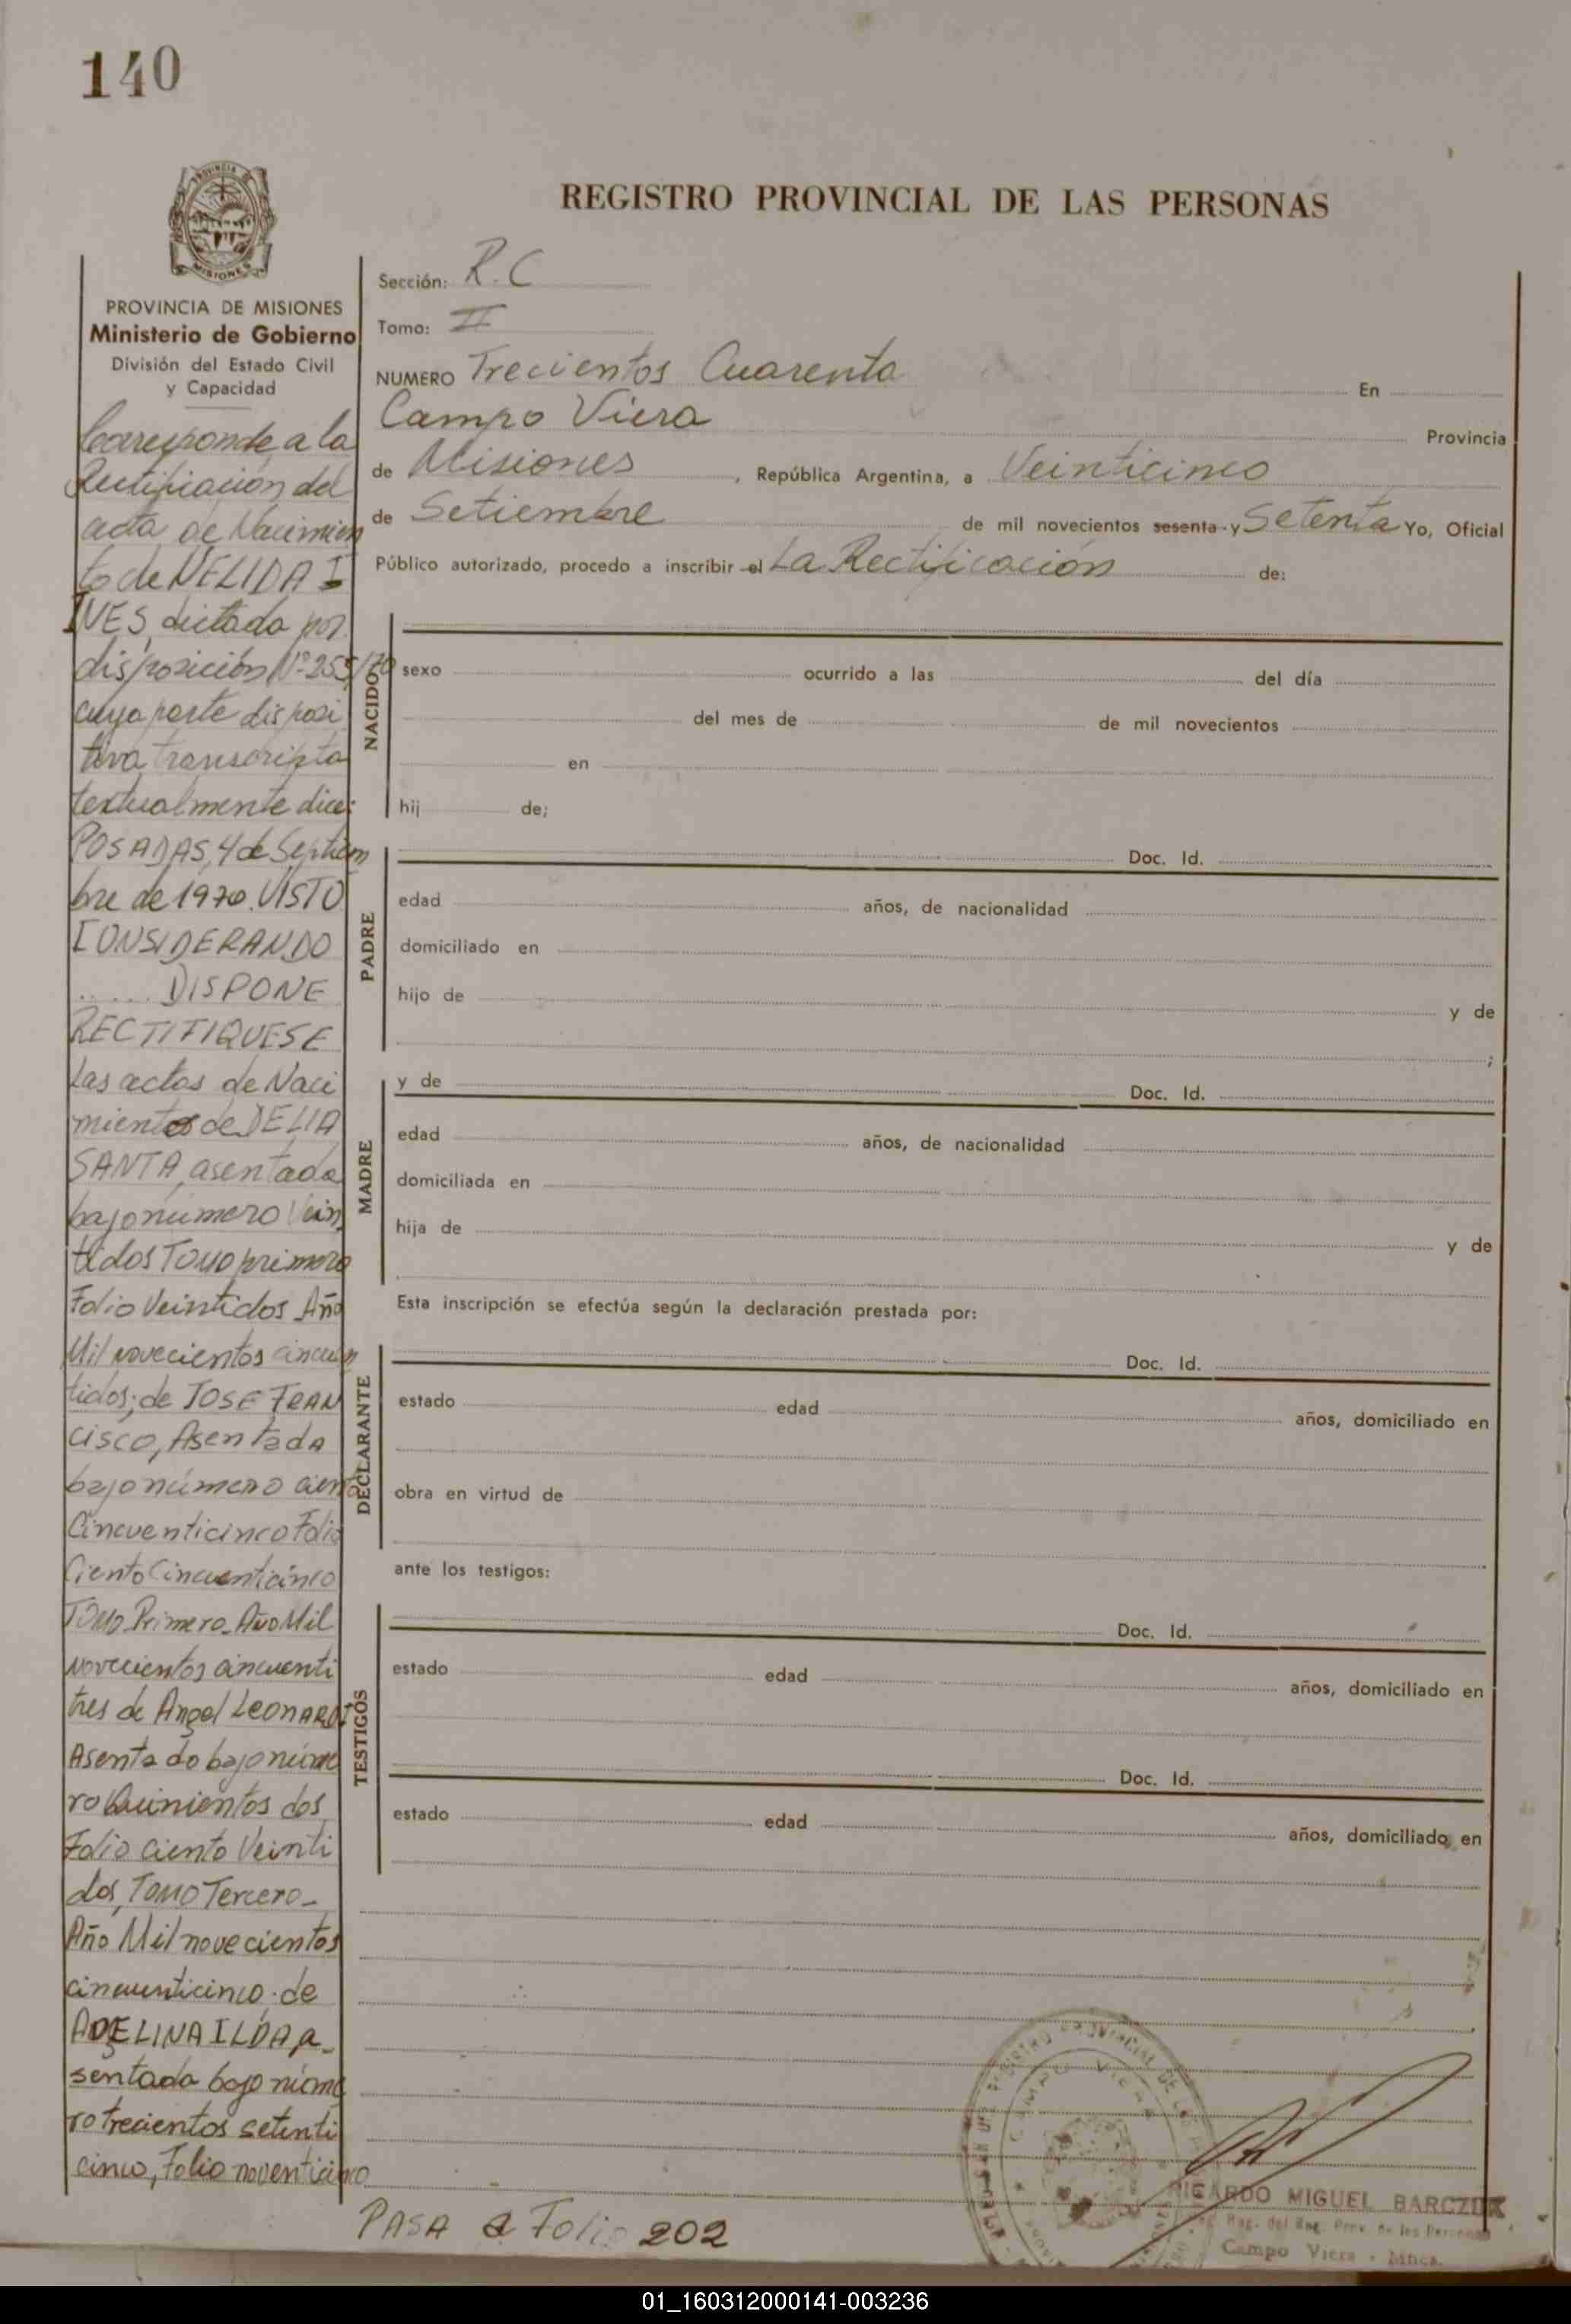 140
REGISTRO PROVINCIAL DE LAS PERSONAS
PROVINCIA DE MISIONES
Ministerio de Gobierno
División del Estado Civil
y Capacidad
Corresponde a la
Rectificación del
acta de Nacimien
to de NELIDA I
INES, dictada por
disposición Nº 255/70
cuya parte disposi
tiva transcripta
textualmente dice:
POSADAS, 4 de Septiem
bre de 1970. VISTO
CONSIDERANDO
..... DISPONE
RECTIFIQUESE
Las actas de Naci
mientos de DELIA
SANTA, asentada
bajo número Vein
tidos Tomo primero
Folio Veintidos Año
Mil novecientos cincuen
tidos; de JOSE FRAN
CISCO, Asentada
bajo número ciento
Cincuenticinco Folio
Ciento Cincuenticinco
Tomo Primero_Año Mil
novecientos cincuenti
tres de Angel LEONARDI
Asentado bajo núme
ro Quinientos dos
Folio ciento Veinti
dos, TOMO Tercero_
Año Mil novecientos
cincuenticinco. de
ADELINA ILDA a_
sentada bajo núme
ro trecientos setenti
cinco, Folio noventicinco
Sección: R.C
Tomo: II
NUMERO Trecientos Cuarenta En
Campo Viera Provincia
de Misiones, República Argentina, a Veinticinco
de Setiembre de mil novecientos sesenta y Setenta Yo, Oficial
Público autorizado, procedo a inscribir el La Rectificación de:
NACIDO
sexo ocurrido a las del día
del mes de de mil novecientos
en
hij de;
PADRE
Doc. Id.
edad años, de nacionalidad
domiciliado en
hijo de y de
;
MADRE
y de Doc. Id.
edad años, de nacionalidad
domiciliada en
hija de y de
Esta inscripción se efectúa según la declaración prestada por:
DECLARANTE
Doc. Id.
estado edad años, domiciliado en
obra en virtud de
ante los testigos:
TESTIGOS
Doc. Id.
estado edad años, domiciliado en
Doc. Id.
estado edad años, domiciliado en
CAMPO VIERA
RICARDO MIGUEL BARCZUK
Reg. del Reg. Prov. de las Personas
Campo Viera - Mnes.
PASA a Folio 202
01_160312000141-003236